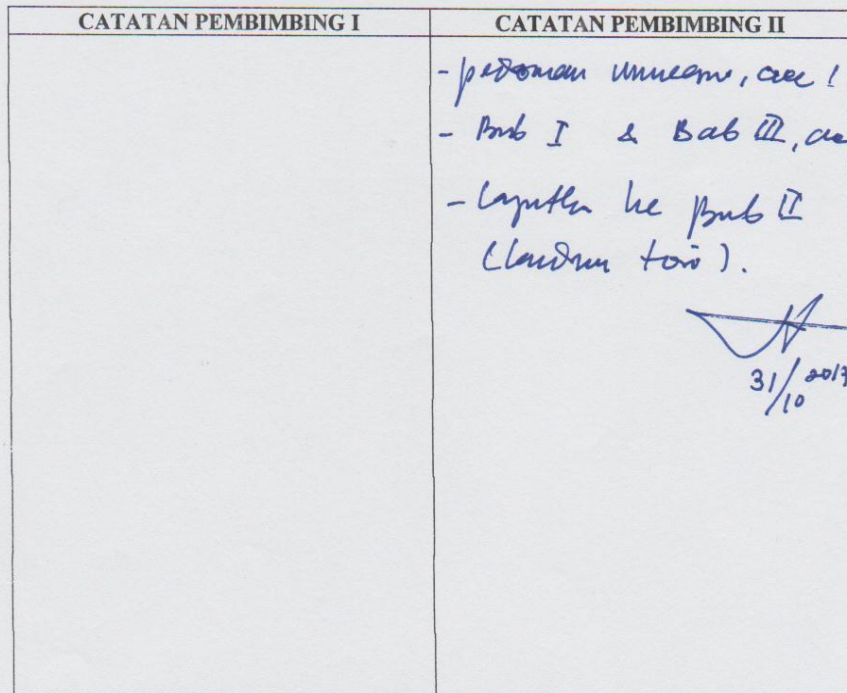 CATATAN PEMBIMBING I
CATATAN PEMBIMBING II
- pedoman wawancara, acc!
- Bab I & Bab III, acc
- Lanjutkan ke Bab II
(landasan teori).
31/10 2017